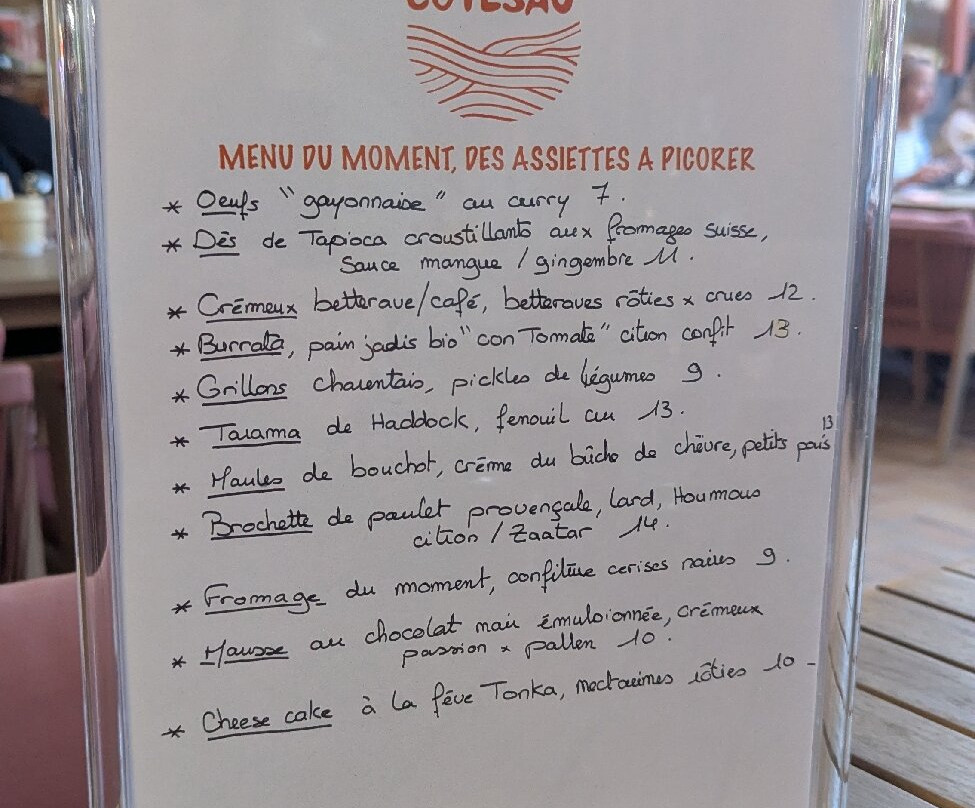 MENU DU MOMENT, DES ASSIETTES A PICORER
* Oeufs "gayonnaise" au curry 7.
* Dès de Tapioca croustillants aux fromages suisse,
Sauce mangue / gingembre 11.
* Crémeux betterave/café, betteraves rôties x crues 12.
* Burrata, pain jadis bio "con Tomate" citron confit 13.
* Grillons Charentais, pickles de légumes 9.
* Tarama de Haddock, fenouil cru 13.
* Moules de bouchot, crème du bûche de chèvre, petits pois 13
* Brochette de poulet provençale, lard, Houmous
citron / Zaatar 14.
* Fromage du moment, confiture cerises noires 9.
* Mousse au chocolat noir émulsionnée, crémeux
passion x pollen 10.
* Cheese cake à la fève Tonka, nectarines rôties 10-